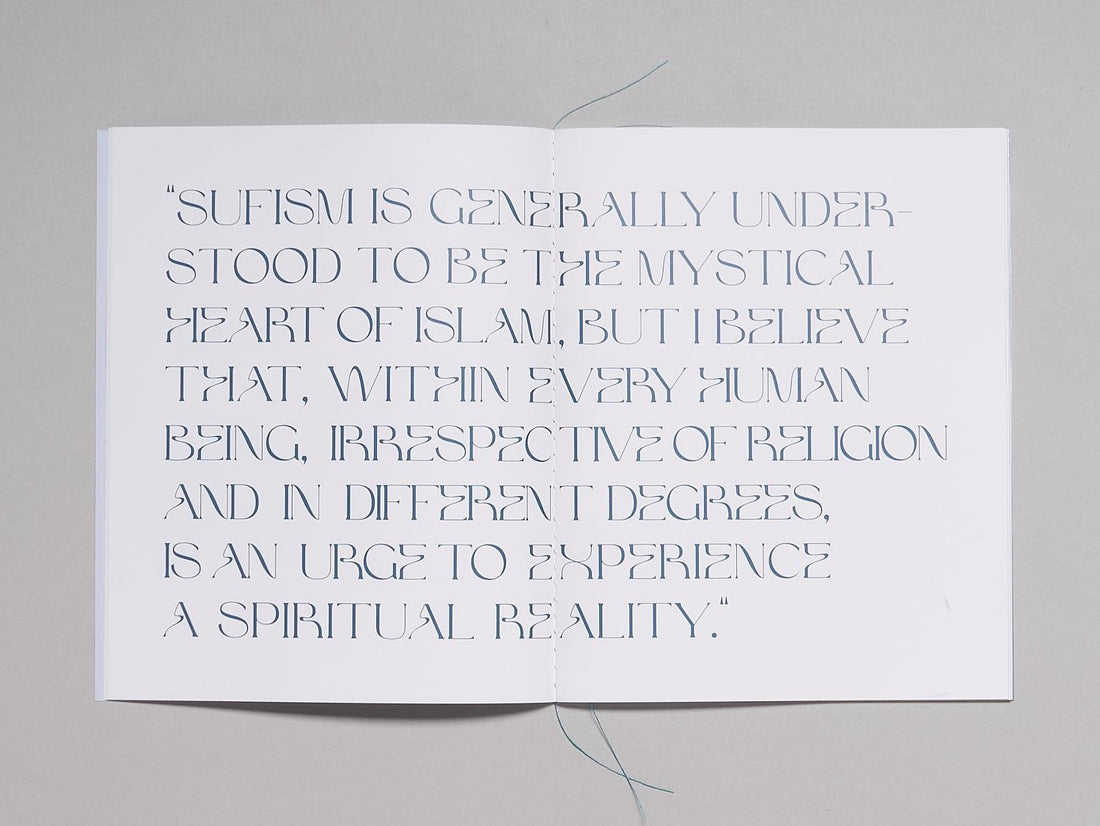 "SUFISM IS GENERALLY UNDER-
STOOD TO BE THE MYSTICAL
HEART OF ISLAM, BUT I BELIEVE
THAT, WITHIN EVERY HUMAN
BEING, IRRESPECTIVE OF RELIGION
AND IN DIFFERENT DEGREES,
IS AN URGE TO EXPERIENCE
A SPIRITUAL REALITY."